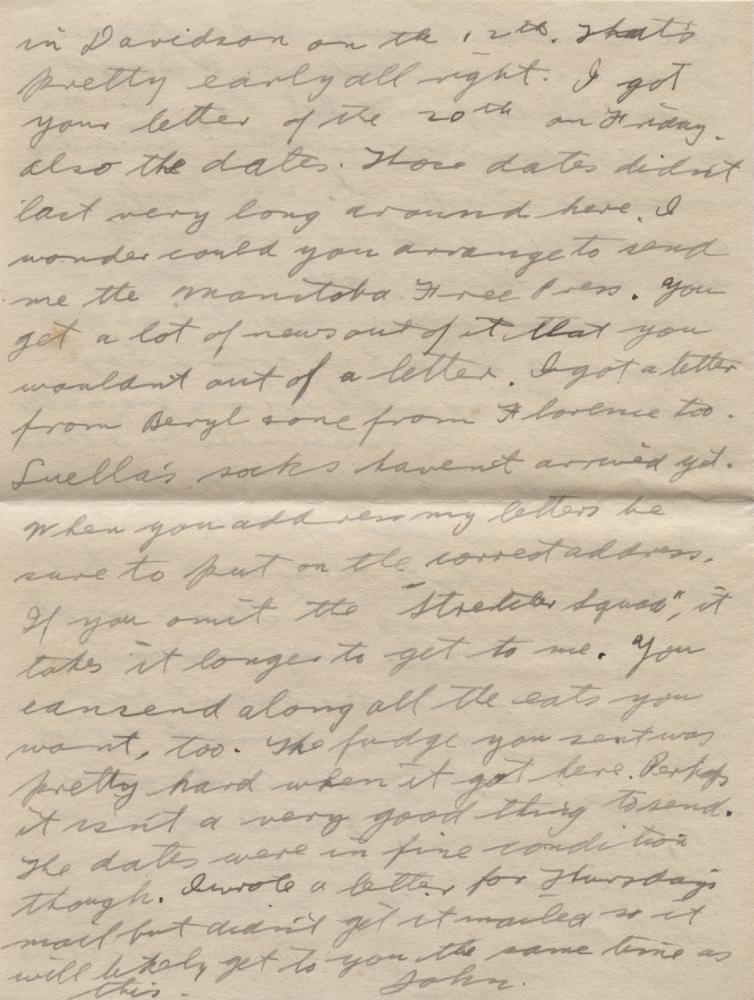 in Davidson on the 12th. That's
pretty early all right. I got
your letter of the 20th on Friday.
also the dates. Those dates didn't
last very long around here. I
wonder could you arrange to send
me the Manitoba Free Press. You
get a lot of news out of it that you
wouldn't out of a letter. I got a letter
from Beryl & one from Florence too.
Luella's socks haven't arrived yet.
When you address my letters be
sure to put on the correct address.
If you omit the "Stretcher Squad", it
takes it longer to get to me. You
can send along all the eats you
want, too. The fudge you sent was
pretty hard when it got here. Perhaps
it isn't a very good thing to send.
The dates were in fine condition
though. I wrote a letter for Thursdays
mail but didn't get it mailed so it
will likely get to you the same time as
this. John.